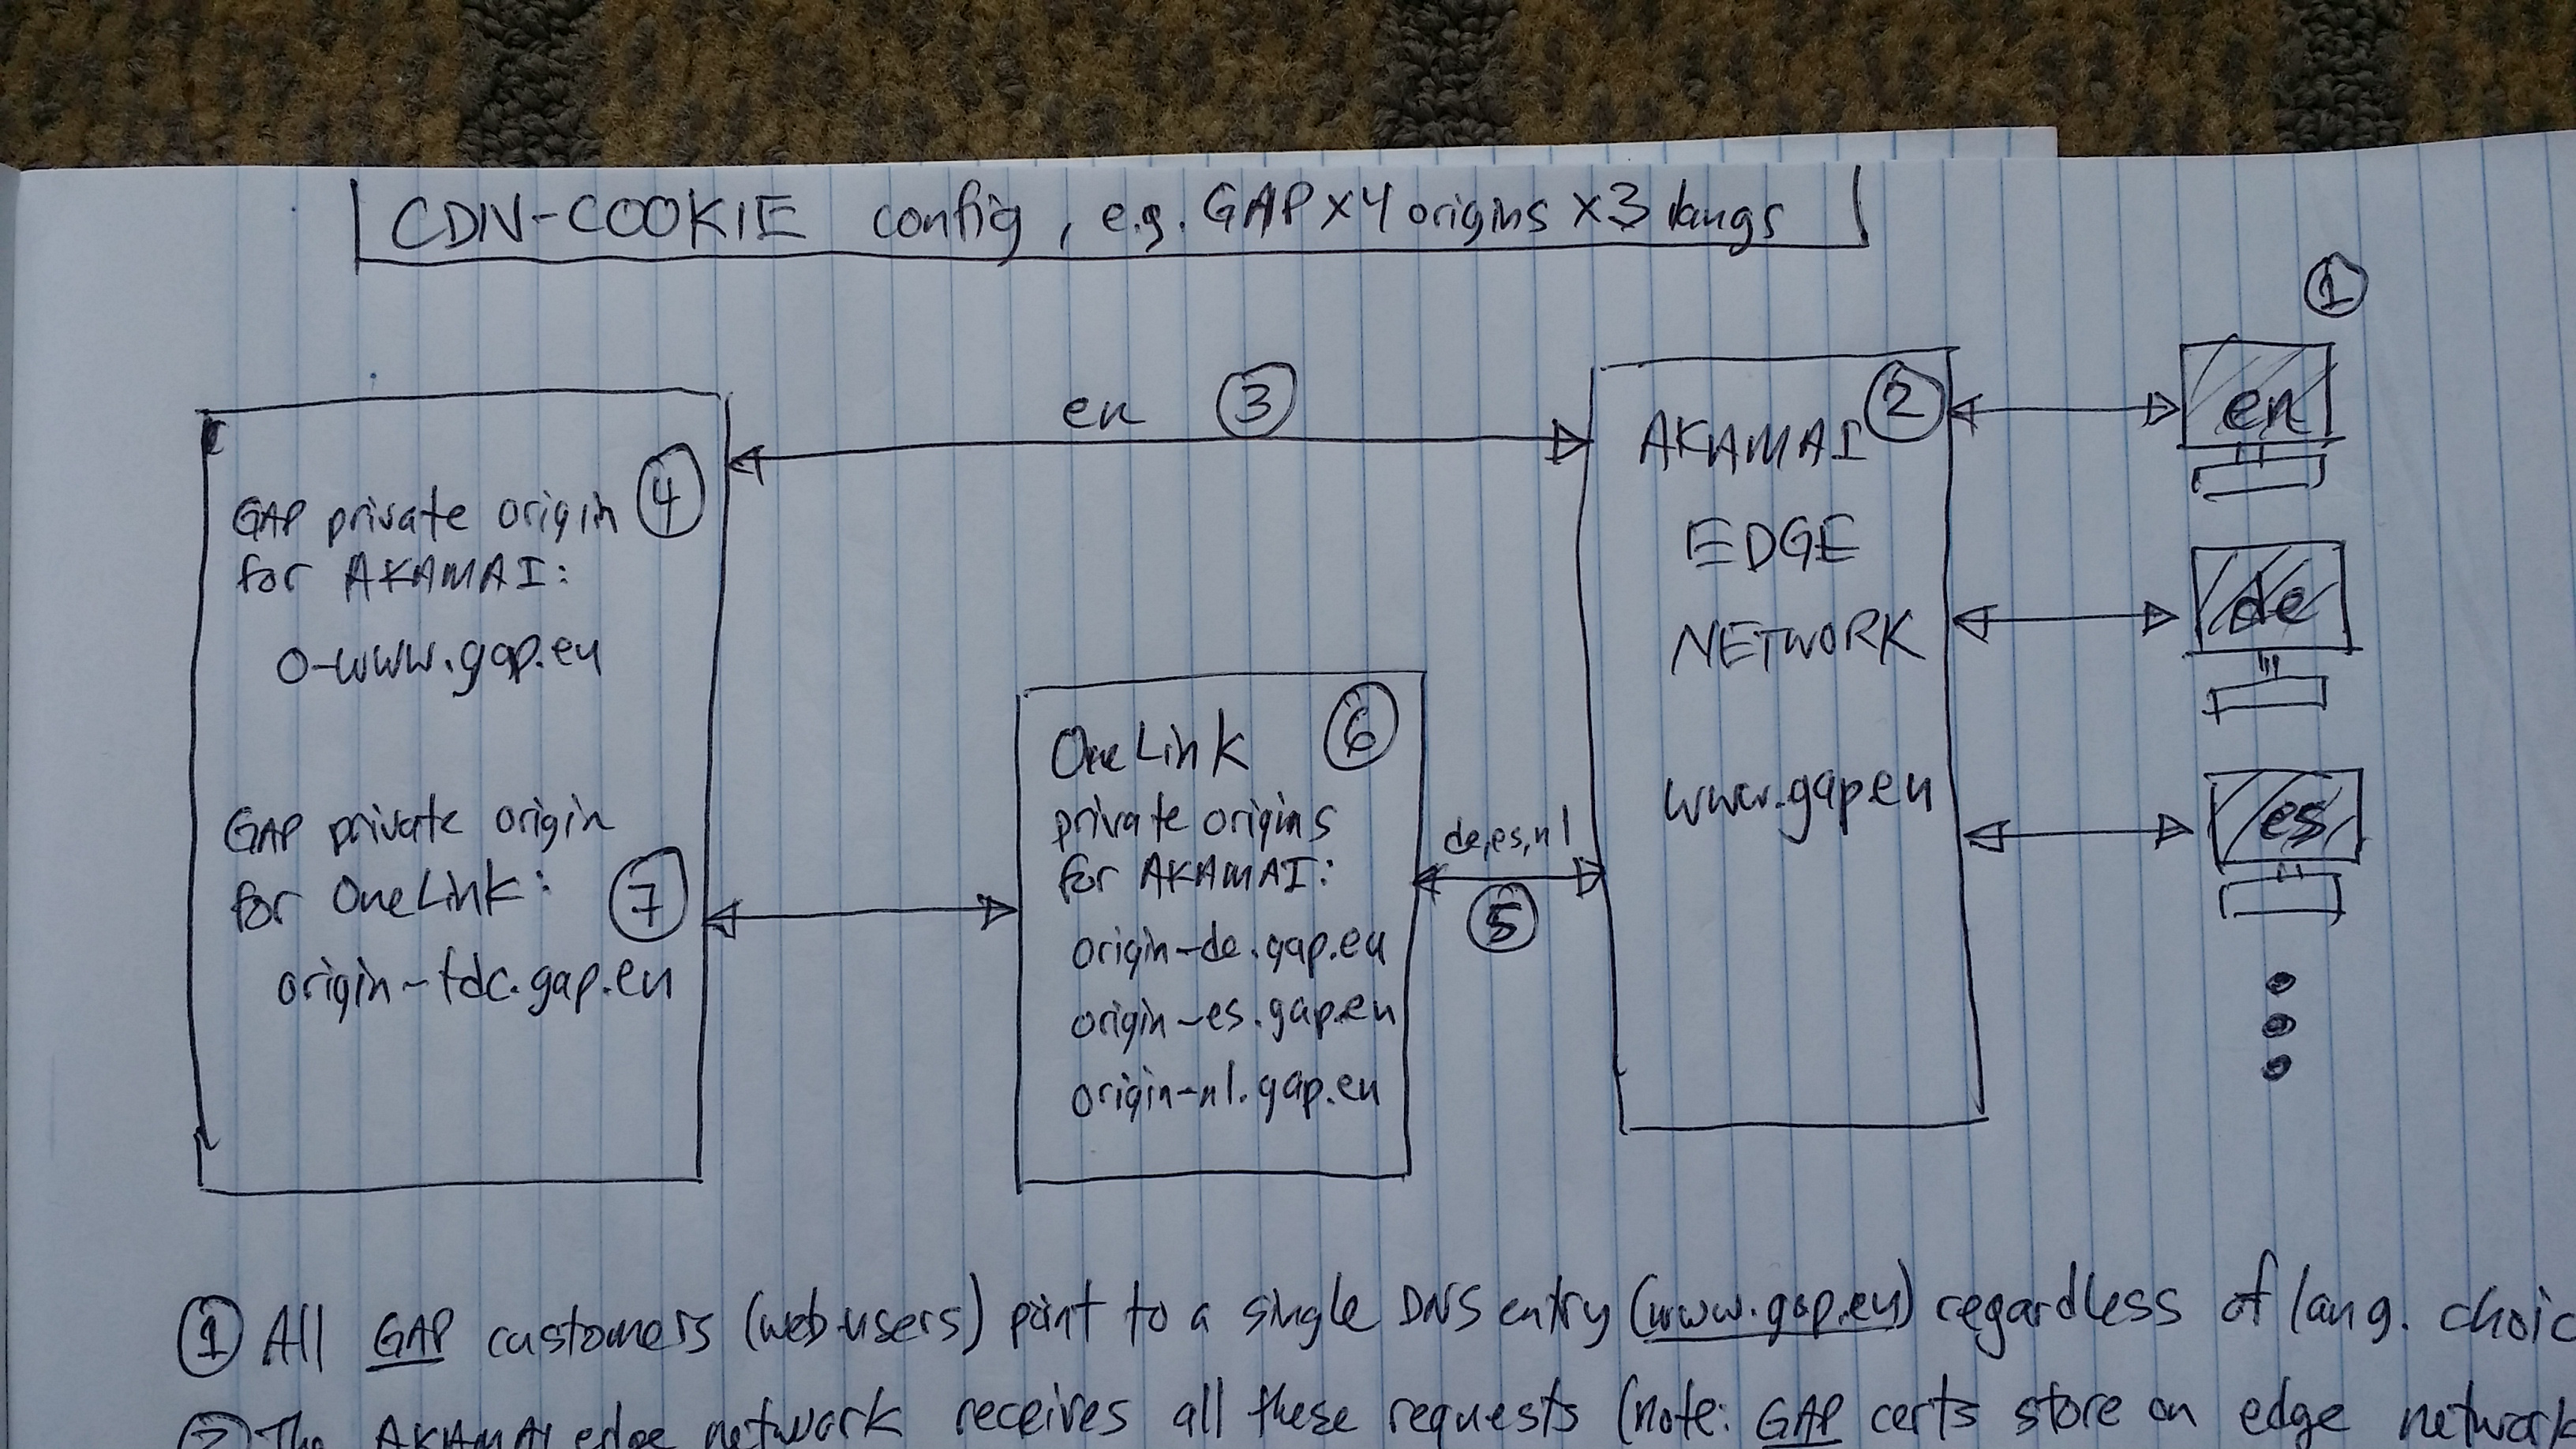 CDN-COOKIE config, e.g. GAP x4 origins x3 langs
1
en
de
es
2
AKAMAI
EDGE
NETWORK
www.gap.eu
en 3
4
GAP private origin
for AKAMAI:
o-www.gap.eu
GAP private origin
for OneLink:
7
origin-tdc.gap.eu
6
OneLink
private origins
for AKAMAI:
origin-de.gap.eu
origin-es.gap.eu
origin-nl.gap.eu
de,es,nl
5
1 All GAP customers (web users) point to a single DNS entry (www.gap.eu) regardless of lang. choic
2 The AKAMAI edge network receives all these requests (note: GAP certs store on edge network